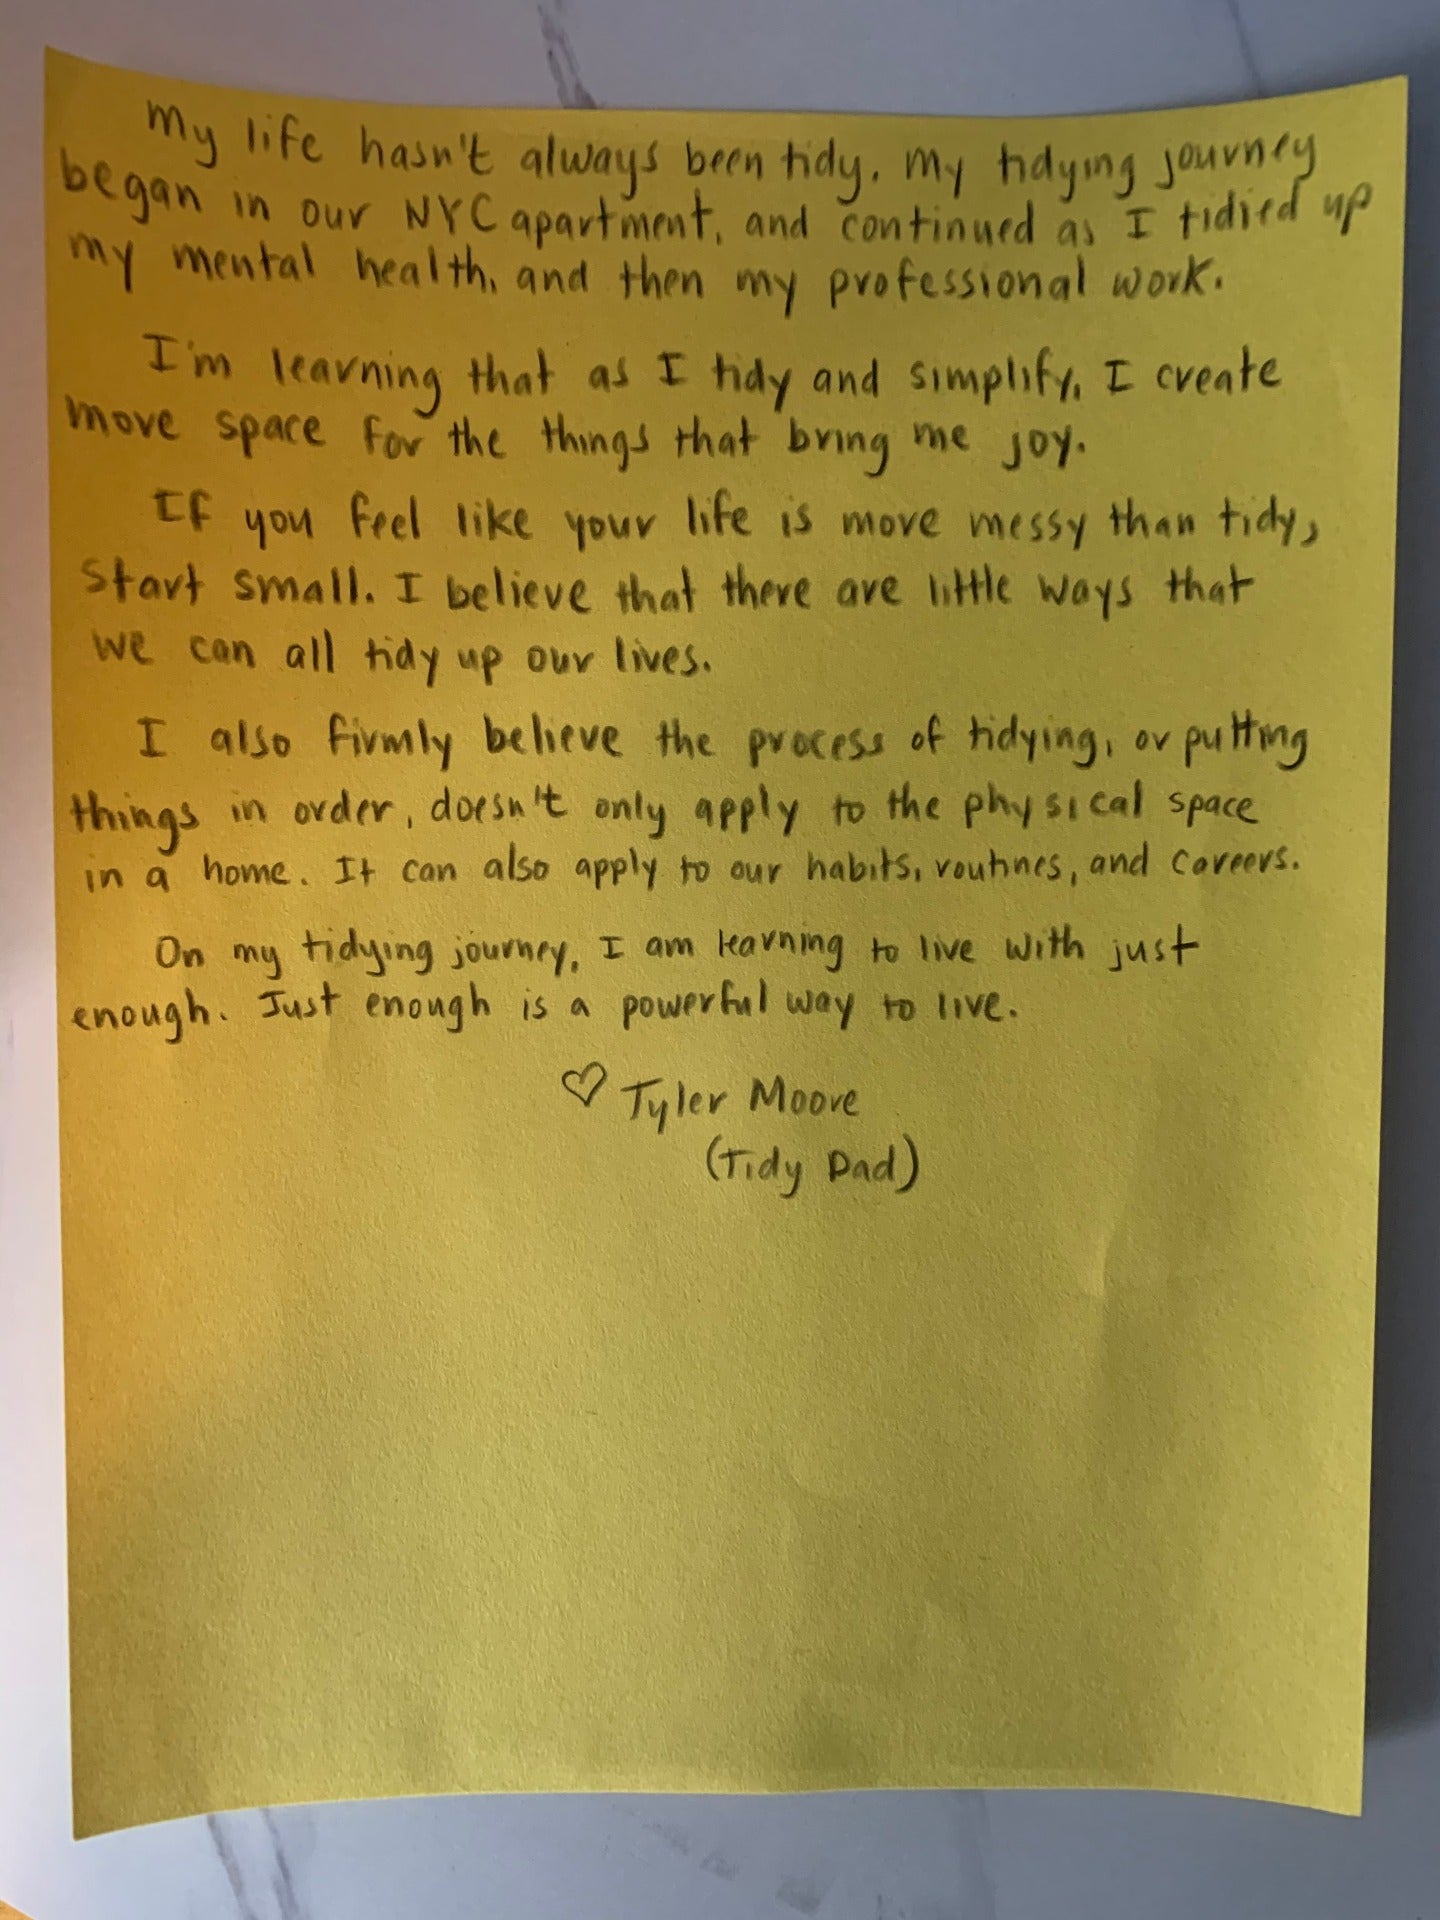 My life hasn't always been tidy. My tidying journey
began in our NYC apartment, and continued as I tidied up
my mental health, and then my professional work.
I'm learning that as I tidy and simplify, I create
more space for the things that bring me joy.
If you feel like your life is more messy than tidy,
start small. I believe that there are little ways that
we can all tidy up our lives.
I also firmly believe the process of tidying, or putting
things in order, doesn't only apply to the physical space
in a home. It can also apply to our habits, routines, and careers.
On my tidying journey, I am learning to live with just
enough. Just enough is a powerful way to live.
♡ Tyler Moore
(Tidy Dad)